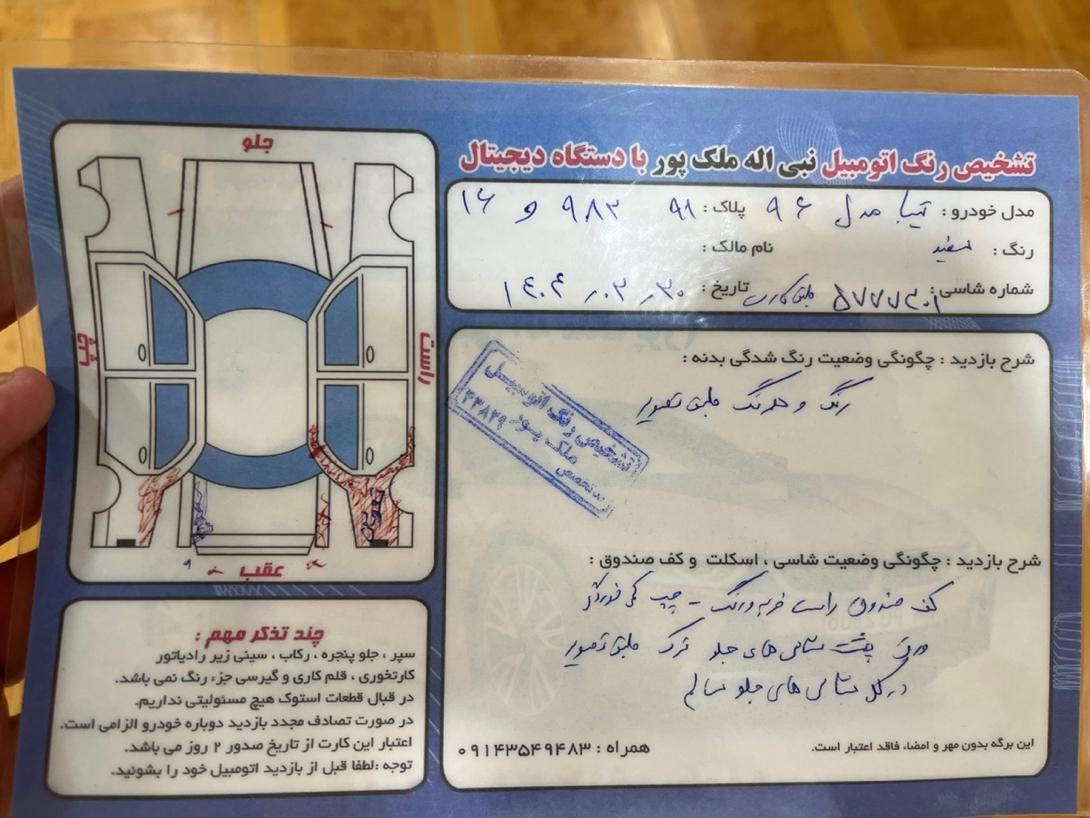 تشخیص رنگ اتومبیل نبی اله ملک پور با دستگاه دیجیتال
مدل خودرو : تیبا مدل ۹۶ پلاک : ۹۱ ۹۸۳ و ۱۶
رنگ : سفید نام مالک :
شماره شاسی : تاریخ : ۱۴۰۴٫۰۳٫۳۰
شرح بازدید : چگونگی وضعیت رنگ شدگی بدنه :
رنگ و لکه رنگ طبق تصویر
تشخیص رنگ اتومبیل
ملک پور
شرح بازدید : چگونگی وضعیت شاسی ، اسکلت و کف صندوق :
کف صندوق راست ضربه و رنگ - چپ کمی خوردگی
پشت شاسی های جلو ترک طبق تصویر
در کل شاسی های جلو سالم
این برگه بدون مهر و امضا، فاقد اعتبار است.
همراه : ۰۹۱۴۳۵۴۹۴۸۳
جلو
چپ
راست
تعویض
عقب
چند تذکر مهم :
سپر ، جلو پنجره ، رکاب ، سینی زیر رادیاتور
کارتخوری ، قلم کاری و گیرسی جزء رنگ نمی باشد.
در قبال قطعات استوک هیچ مسئولیتی نداریم.
در صورت تصادف مجدد بازدید دوباره خودرو الزامی است.
اعتبار این کارت از تاریخ صدور ۲ روز می باشد.
توجه :لطفا قبل از بازدید اتومبیل خود را بشوئید.